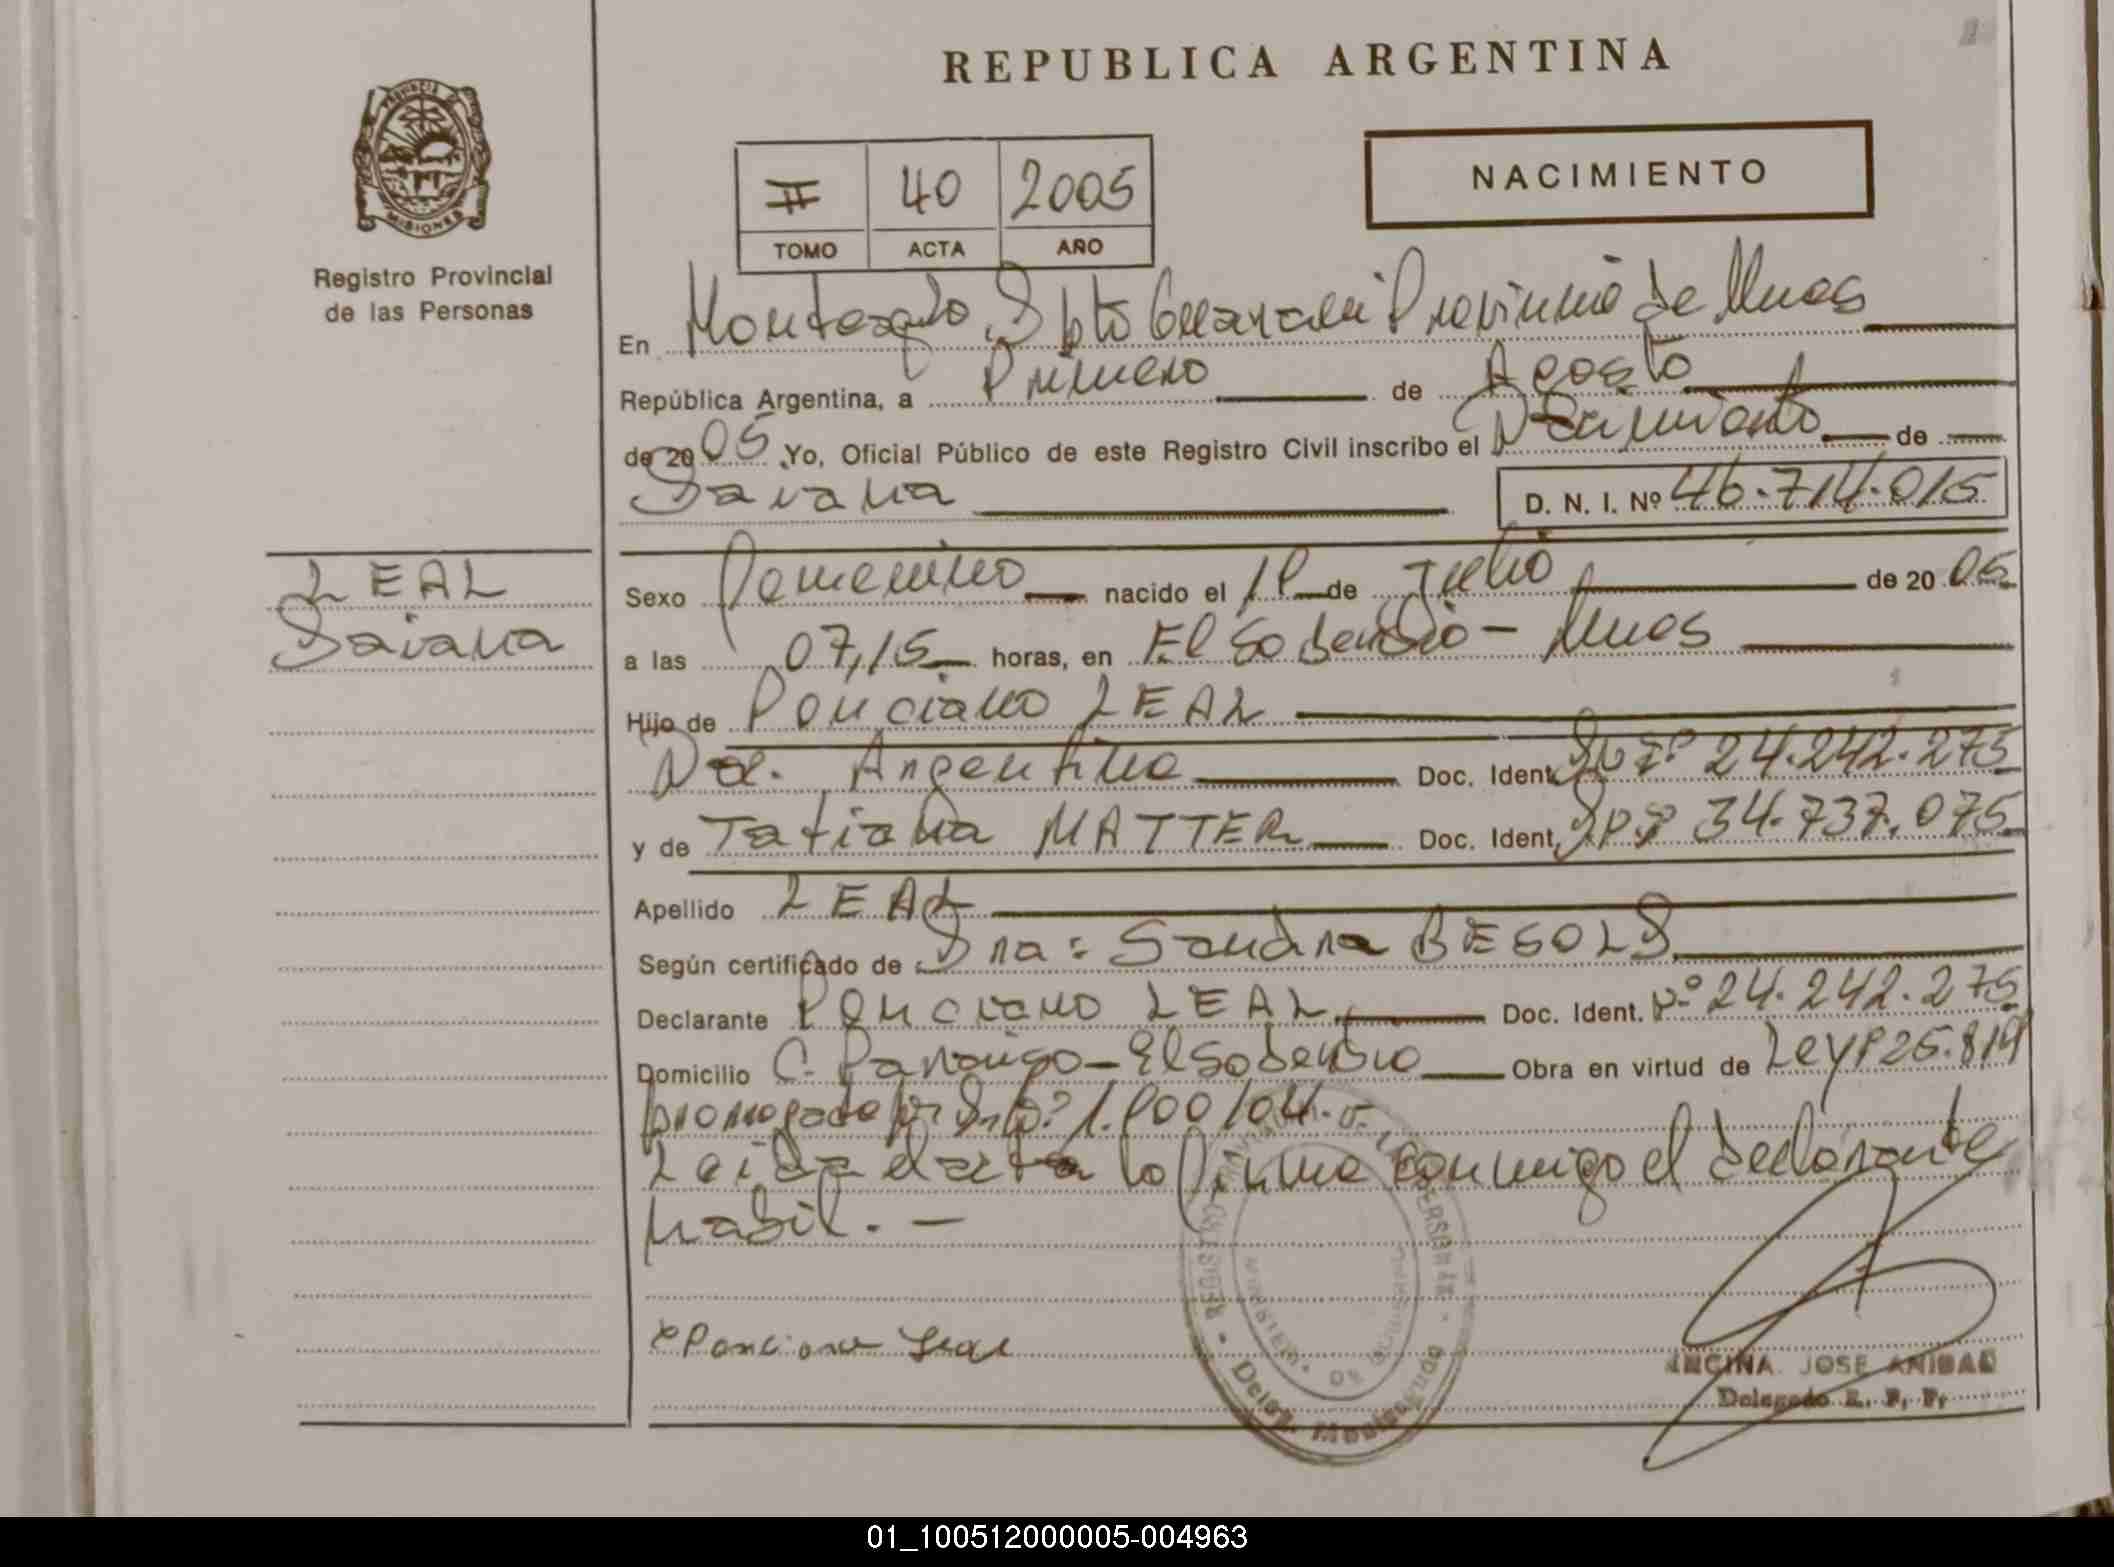 REPUBLICA ARGENTINA
PROVINCIA DE
MISIONES
Registro Provincial
de las Personas
II 40 2005
TOMO ACTA AÑO
NACIMIENTO
En Monteagudo, Dpto Guaraní Provincia de Mnes
República Argentina, a Primero de Agosto
de 2005 Yo, Oficial Público de este Registro Civil inscribo el Nacimiento de
Daiana D. N. I. Nº 46.714.015
LEAL
Daiana
Sexo Femenino nacido el de Julio de 2005
a las 07,15 horas, en El Soberbio - Mnes
Hijo de Ponciano LEAL
Nac. Argentina Doc. Ident. 24.242.275
y de Tatiana MATTER Doc. Ident. 34.737.075
Apellido LEAL
Según certificado de Dra: Sandra BESOLD
Declarante Ponciano LEAL Doc. Ident. Nº 24.242.275
Domicilio C. Paraiso - El Soberbio Obra en virtud de Ley 25.819
prorrogada por
Leida el acta la firma conmigo el declarante
habil. -
Ponciano Leal
REGISTRO PROVINCIAL DE LAS PERSONAS
MINISTERIO DE GOBIERNO
Deleg. Monteagudo
ENCINA JOSE ANIBAL
Delegado R. P. P.
01_100512000005-004963